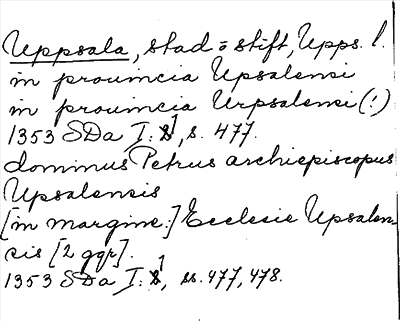 Uppsala, stad o stift, Upps. l.
in prouincia Upsalensi
in prouincia Urpsalensi (!)
1353 SDa I:1, s. 477.
dominus Petrus archiepiscopus
Upsalensis
[in margine:] Ecclesie Upsalen-
sis [2 ggr].
1353 SDa I:1, ss. 477, 478.